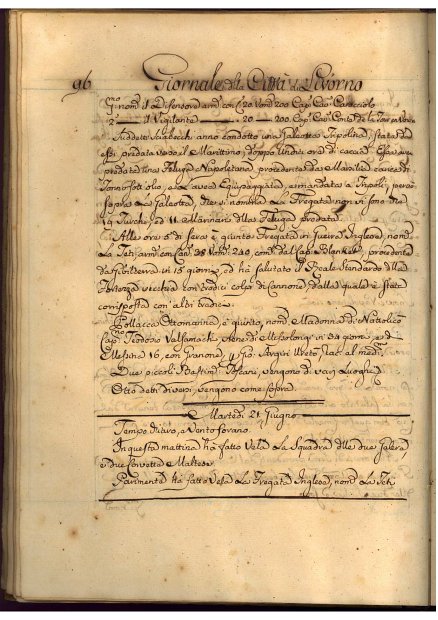 96 Giornale della Città di Livorno
p.mo nom.o il Difensore arm. con C. 20 Uom. 200 Cap. Cav. Caracciolo
2.º il Vigilante 20 200. Cap. Cav. Conte di
Addetti Sciabecchi anno condotto una Galeotta Tripolina, stata da
essi predata verso il Marittimo, doppo undici ore di caccia. Essa aveva
predata una Feluga Napoletana, procedente da Marsilia carica di
Tonno sott'olio, e l'aveva equipaggiata, e mandata a Tripoli, però
sopra la Galeotta, che si nomina La Fregata non vi sono che
19 Turchi, ed 11 Marinari della Feluga predata.
Alle ore 5 di sera è giunto Fregata di Guerra Inglese, nom.
La Teti arm. con Can. 38 Uom. 240, com. dal Cap. Blanket, procedente
da in 15 giorni, ed ha salutato il Reale Stendardo della
Fortezza vecchia con tredici colpi di Cannone, dalla quale è stata
corrisposta con altri tredici.
Pollacca Ottomanna, è giunto, nom. Madonna di Nattolico
Cap.no Teodosio Valsamachi, viene di in 31 giorni, ed
Messina 16, con Granone, rac. al med.
Due piccoli Bastim. Toscani, vengono di varj Luoghi
Otto detti diversi vengono come sopra.
Martedì 21 Giugno
Tempo, e Vento
In questa mattina ha fatto Vela La Squadra delle due Galere
e due Corvette Maltese.
Parimente ha fatto Vela La Fregata Inglese, nom. La Teti